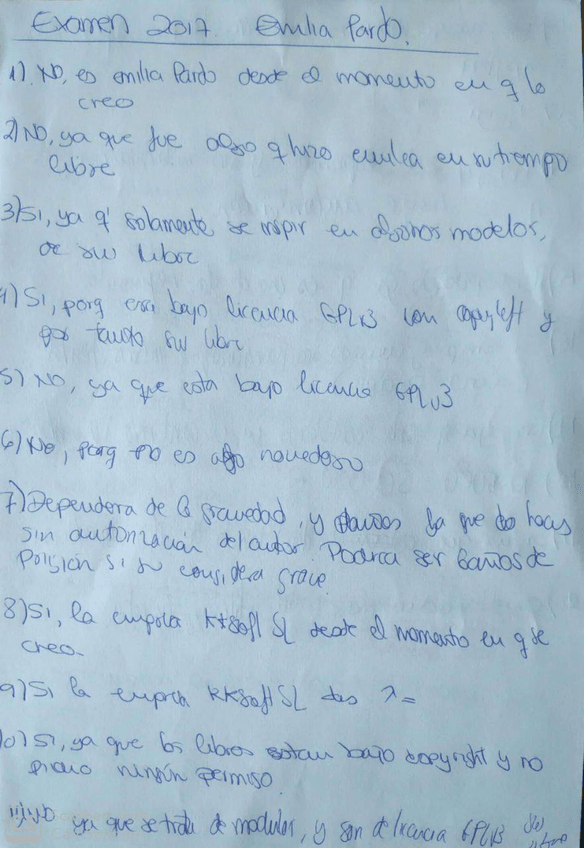 Examen 2017 Emilia Pardo.
1). NO, es emilia Pardo desde el momento en q lo
creo
2) NO, ya que fue algo q hizo emilea en su tiempo
libre
3) SI, ya q' solamente se inspir en algunos modelos,
de sw libre
4) SI, porq esta bajo licencia GPLv3 con copyleft y
por tanto sw libre
5) NO, ya que esta bajo licencia GPLv3
6) No, porq no es algo novedoso
7) Dependera de la gravedad, y ya que lo haces
sin autorización del autor. Podria ser 6 años de
Polision si se considera grave.
8) SI, la empresa KKsoft SL desde el momento en q se
creo.
9) SI la empresa KKsoft SL =
10) SI, ya que los libros estan bajo copyright y no
ningún permiso.
11) NO ya que se trata de modulos, y son de licencia GPLv3 sw
libre